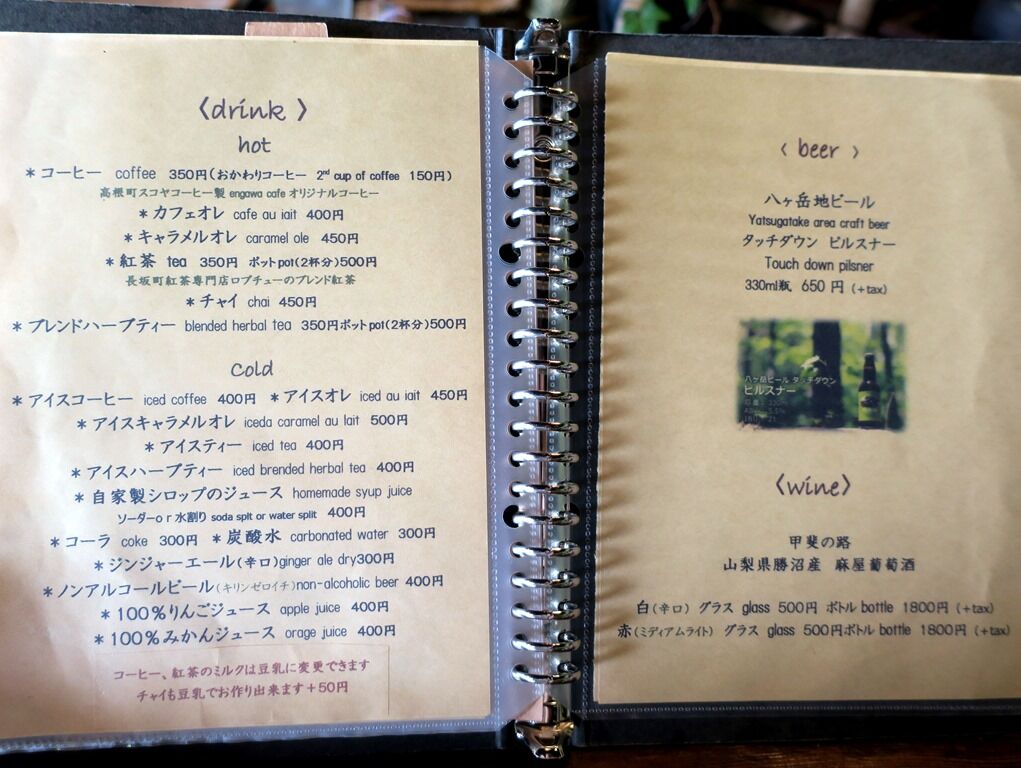 〈drink 〉
hot
＊コーヒー coffee 350円(おかわりコーヒー 2nd cup of coffee 150円)
高根町スコヤコーヒー製 engawa cafe オリジナルコーヒー
＊カフェオレ cafe au iait 400円
＊キャラメルオレ caramel ale 450円
＊紅茶 tea 350円 ポットpot(2杯分)500円
長坂町紅茶専門店ロブチューのブレンド紅茶
＊チャイ chai 450円
＊ブレンドハーブティー blended herbal tea 350円ポットpot(2杯分)500円
Cold
＊アイスコーヒー iced coffee 400円 ＊アイスオレ iced au iait 450円
＊アイスキャラメルオレ iceda caramel au lait 500円
＊アイスティー iced tea 400円
＊アイスハーブティー iced brended herbal tea 400円
＊自家製シロップのジュース homemade syup juice
ソーダーor水割り soda split or water split 400円
＊コーラ coke 300円 ＊炭酸水 carbonated water 300円
＊ジンジャーエール(辛口)ginger ale dry300円
＊ノンアルコールビール(キリンゼロイチ)non-alcoholic beer 400円
＊100％りんごジュース apple juice 400円
＊100％みかんジュース orage juice 400円
コーヒー、紅茶のミルクは豆乳に変更できます
チャイも豆乳でお作り出来ます＋50円
〈 beer 〉
八ヶ岳地ビール
Yatsugatake area craft beer
タッチダウン ピルスナー
Touch down pilsner
330ml瓶 650円 (+tax)
八ヶ岳ビール タッチダウン
ピルスナー
〈wine〉
甲斐の路
山梨県勝沼産 麻屋葡萄酒
白(辛口) グラス glass 500円 ボトル bottle 1800円 (+tax)
赤(ミディアムライト) グラス glass 500円ボトル bottle 1800円 (+tax)